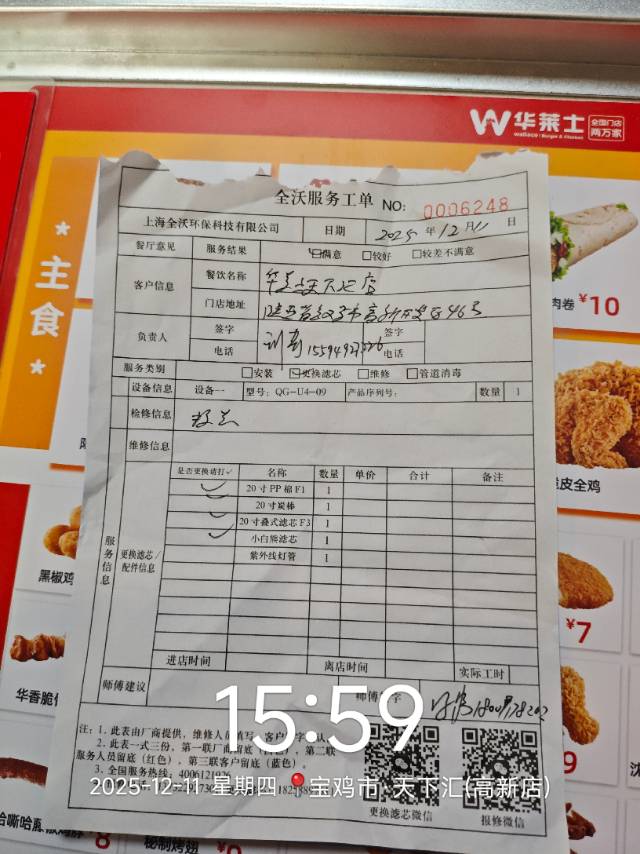 华莱士
wallace | Burger & Chicken
全国门店
两万家
主食
肉卷 ¥10
全沃服务工单 NO: 0006248
上海全沃环保科技有限公司 日期 2025 年 12 月 11 日
餐厅意见 服务结果 满意 较好 较差不满意
客户信息 餐饮名称
门店地址
负责人 签字 签字
电话 电话
服务类别 安装 更换滤芯 维修 管道消毒
设备信息 设备一 型号: QG-U4-09 产品序列号: 数量 1
检修信息
维修信息
服务信息 更换滤芯/配件信息
是否更换请打✓ 名称 数量 单价 合计 备注
20寸PP棉F1 1
20寸炭棒 1
20寸叠式滤芯F3 1
小白熊滤芯 1
紫外线灯管 1
进店时间 离店时间 实际工时
师傅建议
15:59
注: 1. 此表由厂商提供, 维修人员填写
2. 此表一式三份, 第一联厂商留底
第二联
服务人员留底(红色), 第三联客户留底(蓝色)。
3. 全国服务热线:
2025-12-11 星期四 宝鸡市·天下汇(高新店)
更换滤芯微信 报修微信
皮全鸡
¥7
黑椒鸡
华香脆
秘制烤翅